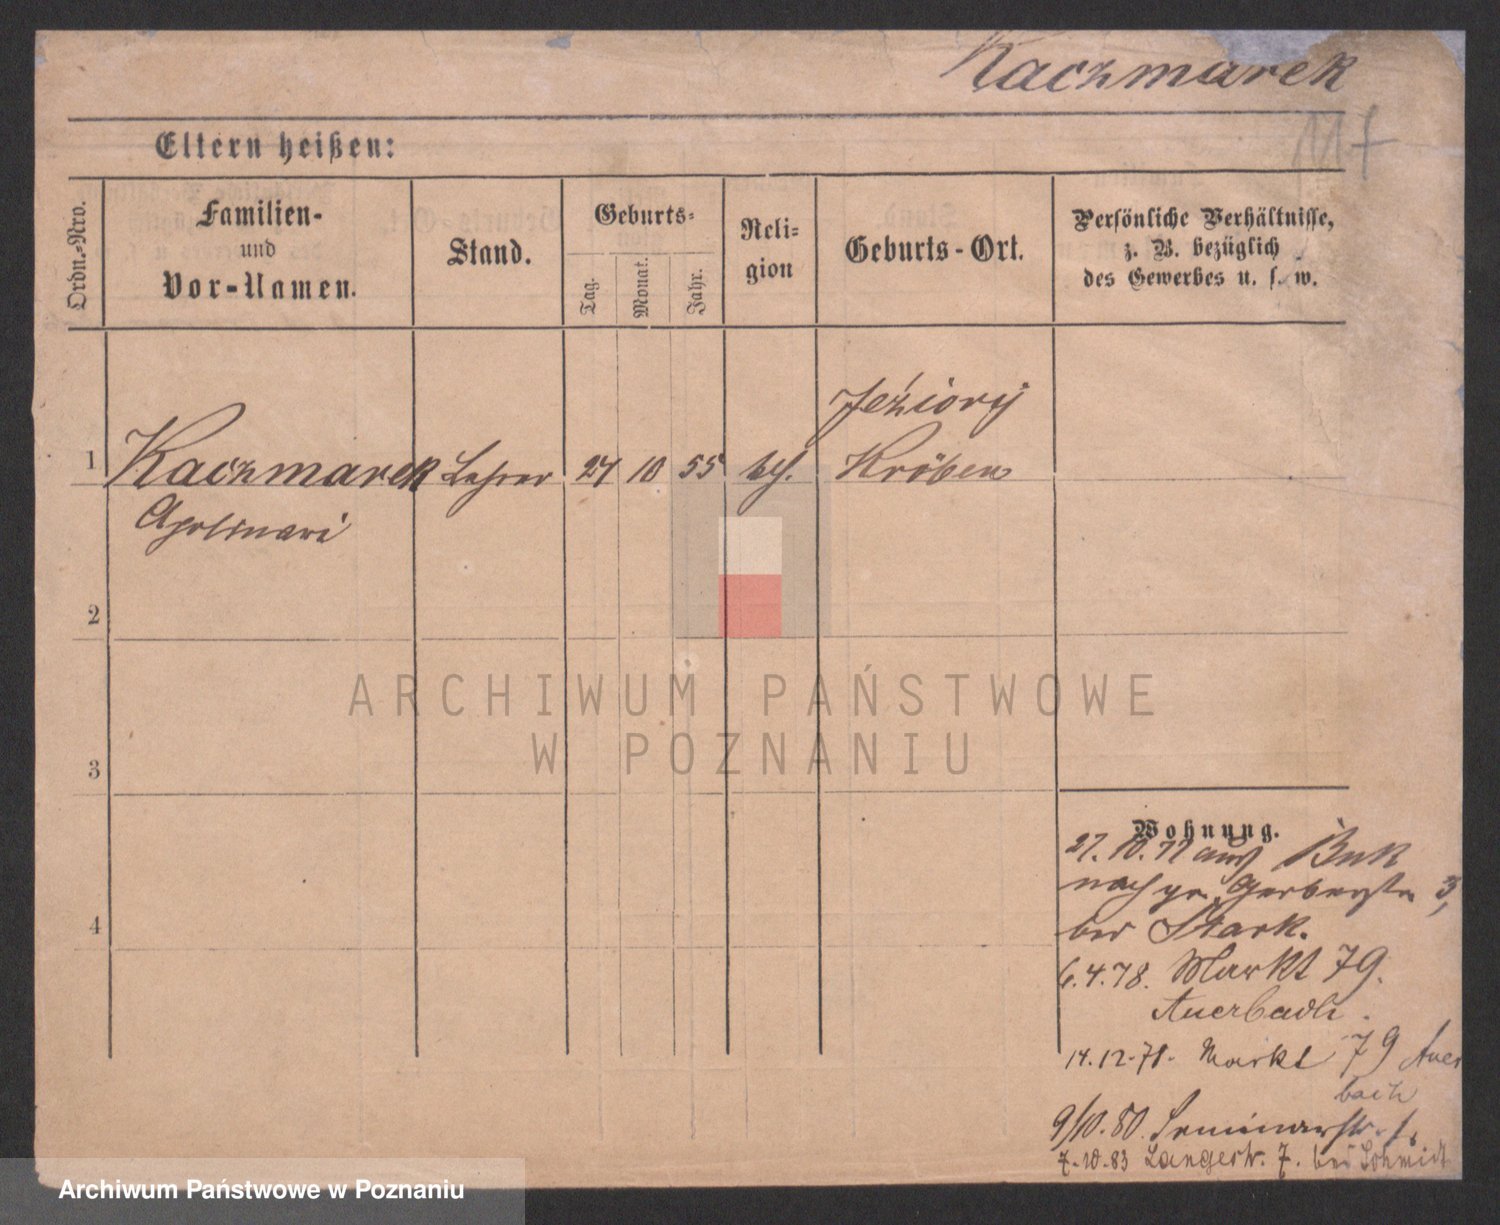 Kaczmarek
Eltern heißen:
Ordn.-Nro.
Familien-
und
Vor-Namen.
Stand.
Geburts-
Tag.
Monat.
Jahr.
Reli-
gion
Geburts-Ort.
Persönliche Verhältnisse,
z. B. bezüglich
des Gewerbes u. s. w.
Jeżiory
1 Kaczmarek Lehrer 27 10 55 kth. Kröben
Apolinari
2
3
4
ARCHIWUM PAŃSTWOWE
W POZNANIU
Wohnung.
27. 10. 77 aus Buk
nach gr. Gerberstr 3,
bei Stark.
6. 4. 78. Markt 79.
Auerbach.
14. 12. 78. Markt 79 Auer
bach
9/10. 80. Seminarstr.
7. 10. 83 Langestr. 7. bei Schmidt
Archiwum Państwowe w Poznaniu